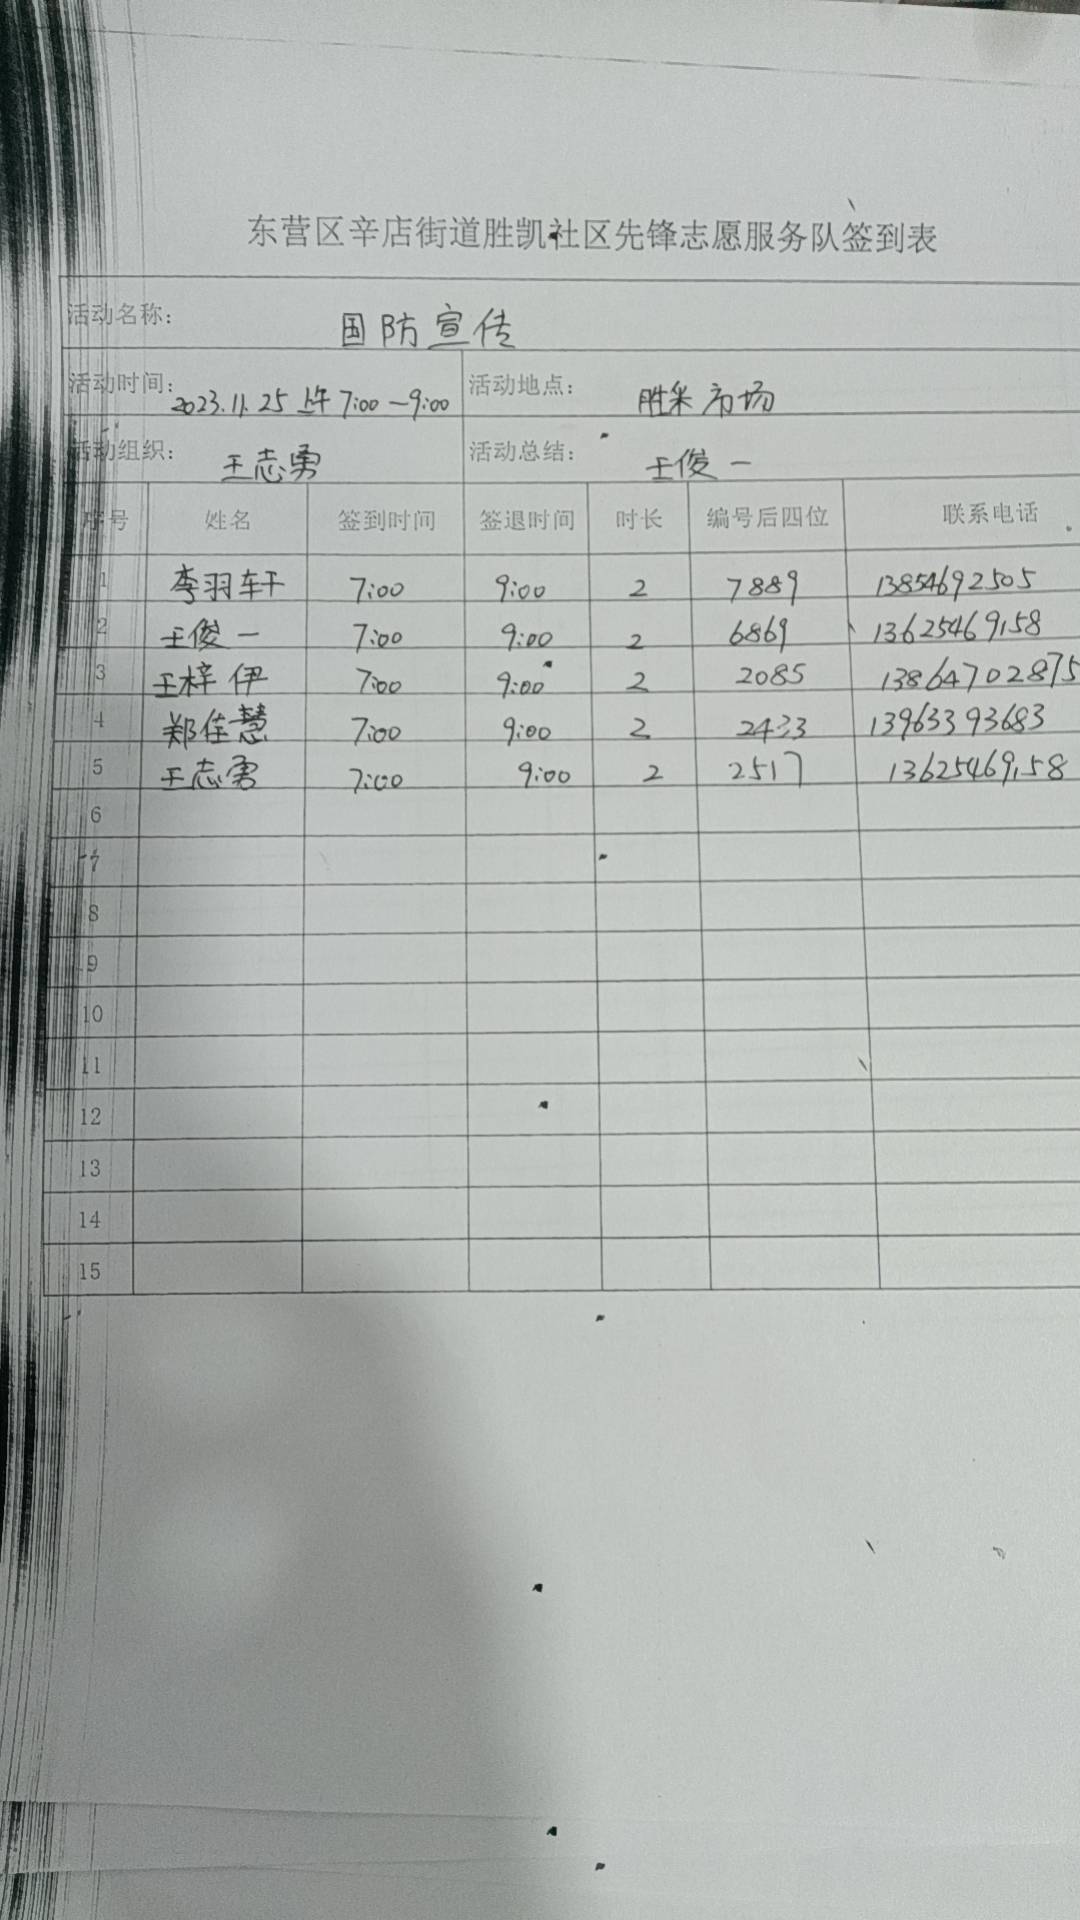 东营区辛店街道胜凯社区先锋志愿服务队签到表
活动名称： 国防宣传
活动时间：2023.11.25 上午 7:00—9:00 活动地点： 胜采市场
活动组织： 王志勇 活动总结： 王俊一
序号 姓名 签到时间 签退时间 时长 编号后四位 联系电话
1 李羽轩 7:00 9:00 2 7889 13854692505
2 王俊一 7:00 9:00 2 6869 13625469158
3 王梓伊 7:00 9:00 2 2085 13864702875
4 郑佳慧 7:00 9:00 2 2433 13963393683
5 王志勇 7:00 9:00 2 2517 13625469158
6
7
8
9
10
11
12
13
14
15